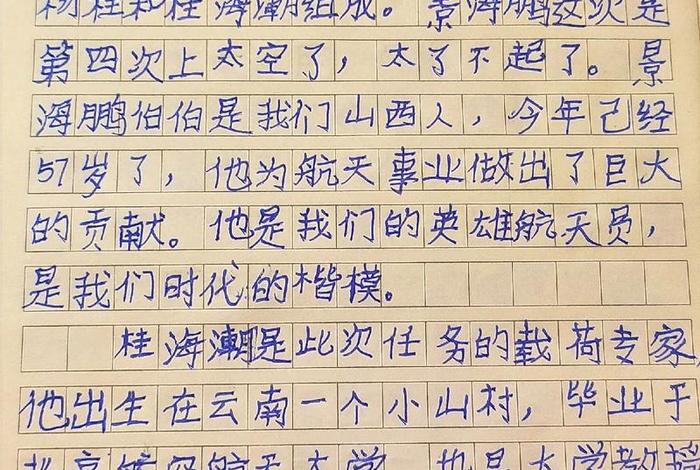 杨柱和桂海潮组成。景海鹏这次是
第四次上太空了，太了不起了。景
海鹏伯伯是我们山西人，今年己经
57岁了，他为航天事业做出了巨大
的贡献。他是我们的英雄航天员，
是我们时代的楷模。
桂海潮是此次任务的载荷专家，
他出生在云南一个小山村，毕业于
北京航空航天大学，也是大学教授